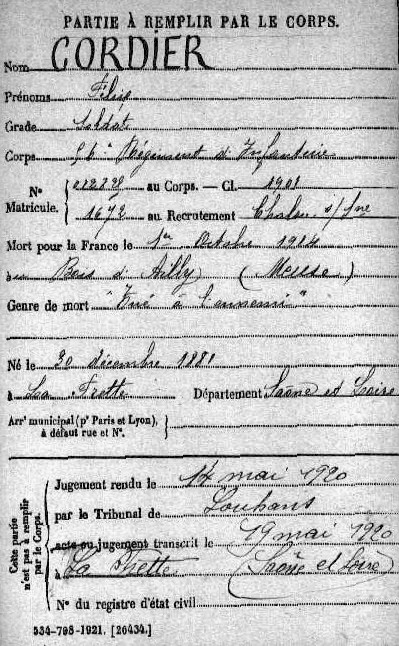 PARTIE À REMPLIR PAR LE CORPS.
Nom CORDIER
Prénoms
Grade Soldat
Corps Régiment d'Infanterie
N° Matricule. { au Corps. — Cl. 1901
1672 au Recrutement Chalon s/Sne
Mort pour la France le 1er Octobre 1914
à Bois d'Ailly (Meuse)
Genre de mort "Tué à l'ennemi"
Né le 30 décembre 1881
à La Frette Département Saône et Loire
Arrt municipal (pr Paris et Lyon), à défaut rue et N°. }
Cette partie n'est pas à remplir par le Corps.
Jugement rendu le 14 mai 1920
par le Tribunal de Louhans
acte ou jugement transcrit le 19 mai 1920
à La Frette (Saône et Loire)
N° du registre d'état civil
534-798-1921. [26434.]